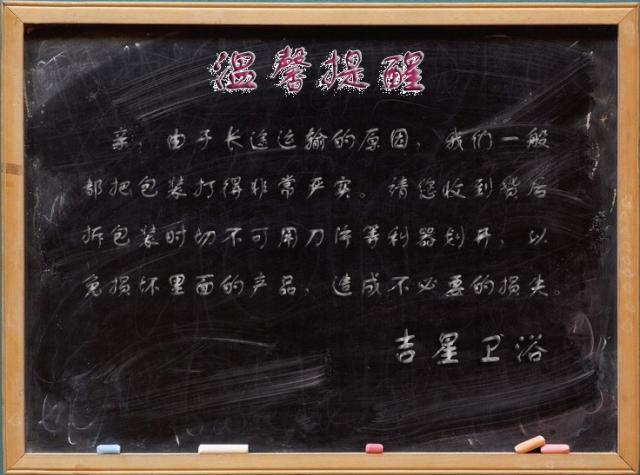 温馨提醒
亲，由于长途运输的原因，我们一般
都把包装打得非常严实。请您收到货后
拆包装时切不可用刀片等利器划开，以
免损坏里面的产品，造成不必要的损失。
吉星卫浴